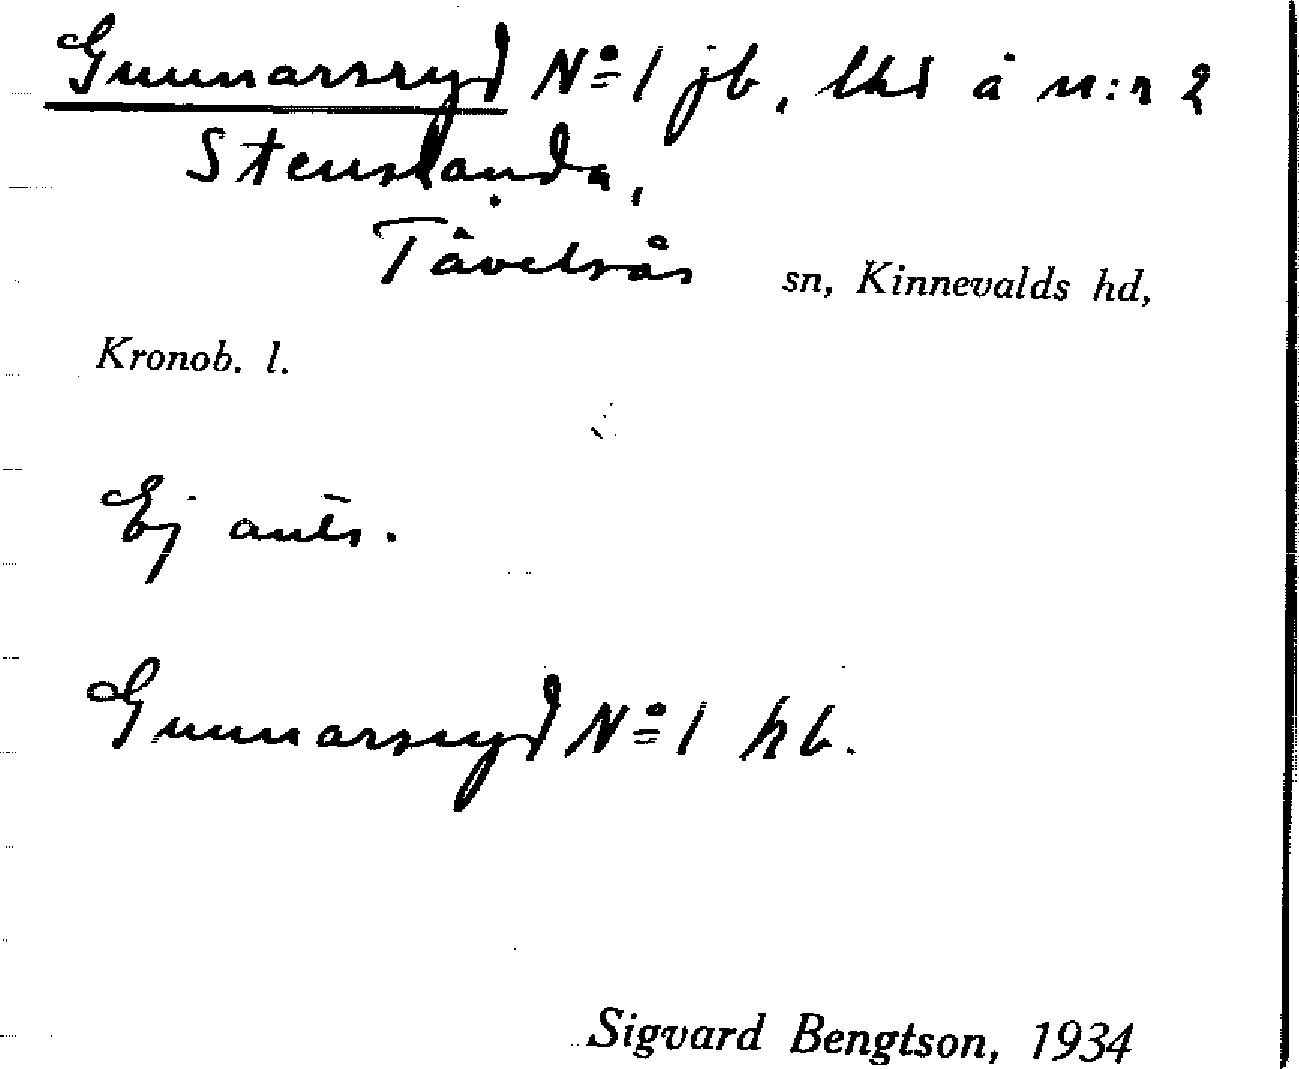 Gunnarsryd Nº 1 jb, lhd å n:r 2
Stenslanda,
Tävelsås sn, Kinnevalds hd,
Kronob. l.
Ej ants.
Gunnarsryd Nº 1 hb.
Sigvard Bengtson, 1934